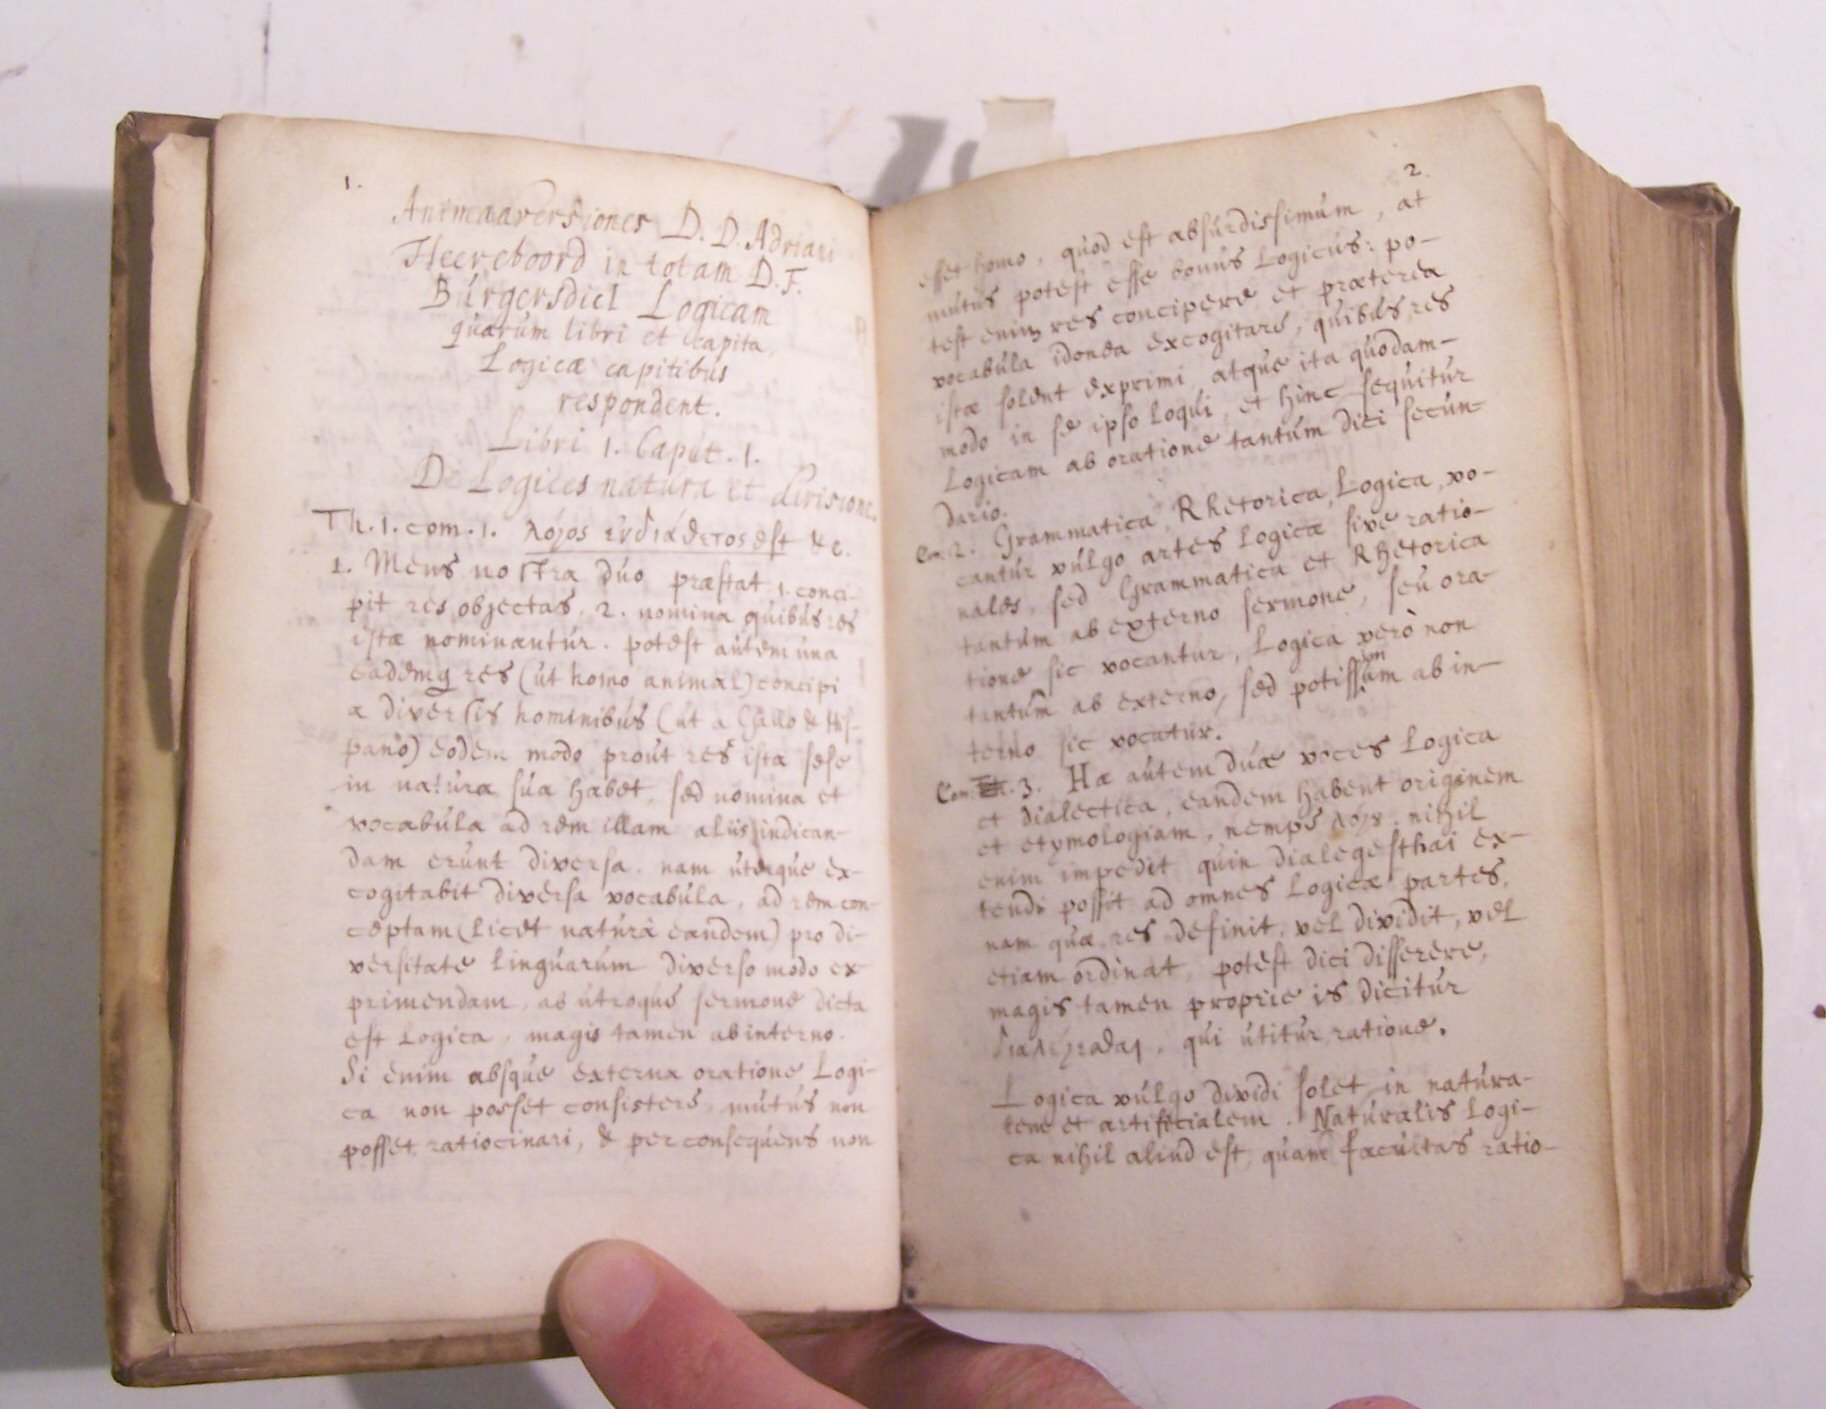 1.
Animadversiones D. D. Adriani
Heereboord in totam D. F.
BurgersdicI Logicam
quarum libri et capita
Logicæ capitibus
respondent.
Libri 1. Caput. 1.
De Logices natura et divisione.
Th. 1. com. 1. λόγος ἐνδιάθετος est &c.
1. Mens nostra duo præstat. 1. conci-
pit res objectas, 2. nomina quibus res
istæ nominantur. potest autem una
eademq res (ut homo animal) concipi
a diversis hominibus (ut a Gallo & His-
pano) eodem modo prout res ista sese
in natura sua habet, sed nomina et
vocabula ad rem illam aliis indican-
dam erunt diversa. nam uterque ex-
cogitabit diversa vocabula, ad rem con-
ceptam (licet naturà eandem) pro di-
versitate linguarum diverso modo ex
primendam. ab utroque sermone dicta
est Logica, magis tamen ab interno.
Si enim absque externa oratione Logi-
ca non posset consistere, mutus non
posset ratiocinari, & per consequens non
2.
esset homo, quod est absurdissimum, at
mutus potest esse bonus Logicus: po-
test enim res concipere et præterea
vocabula idonea excogitare, quibus res
istæ solent exprimi, atque ita quodam-
modo in se ipso loqui, et hinc sequitur
Logicam ab oratione tantum dici secun-
dario.
Com. 2. Grammatica, Rhetorica, Logica, vo-
cantur vulgo artes Logicæ sive ratio-
nales, sed Grammatica et Rhetorica
tantum ab externo sermone, seu ora-
tione sic vocantur, Logica verò non
tantum ab externo, sed potissimum ab in-
terno sic vocatur.
Com. 3. Hæ autem duæ voces Logica
et Dialectica, eandem habent originem
et etymologiam, nempe λόγȣ. nihil
enim impedit quin dialegesthai ex-
tendi possit ad omnes Logicæ partes,
nam quæ res definit, vel dividit, vel
etiam ordinat, potest dici differere,
magis tamen proprie is dicitur
διαλέγεσθαι, qui utitur ratione.
Logica vulgo dividi solet in natura-
lem et artificialem. Naturalis Logi-
ca nihil aliud est, quam facultas ratio-